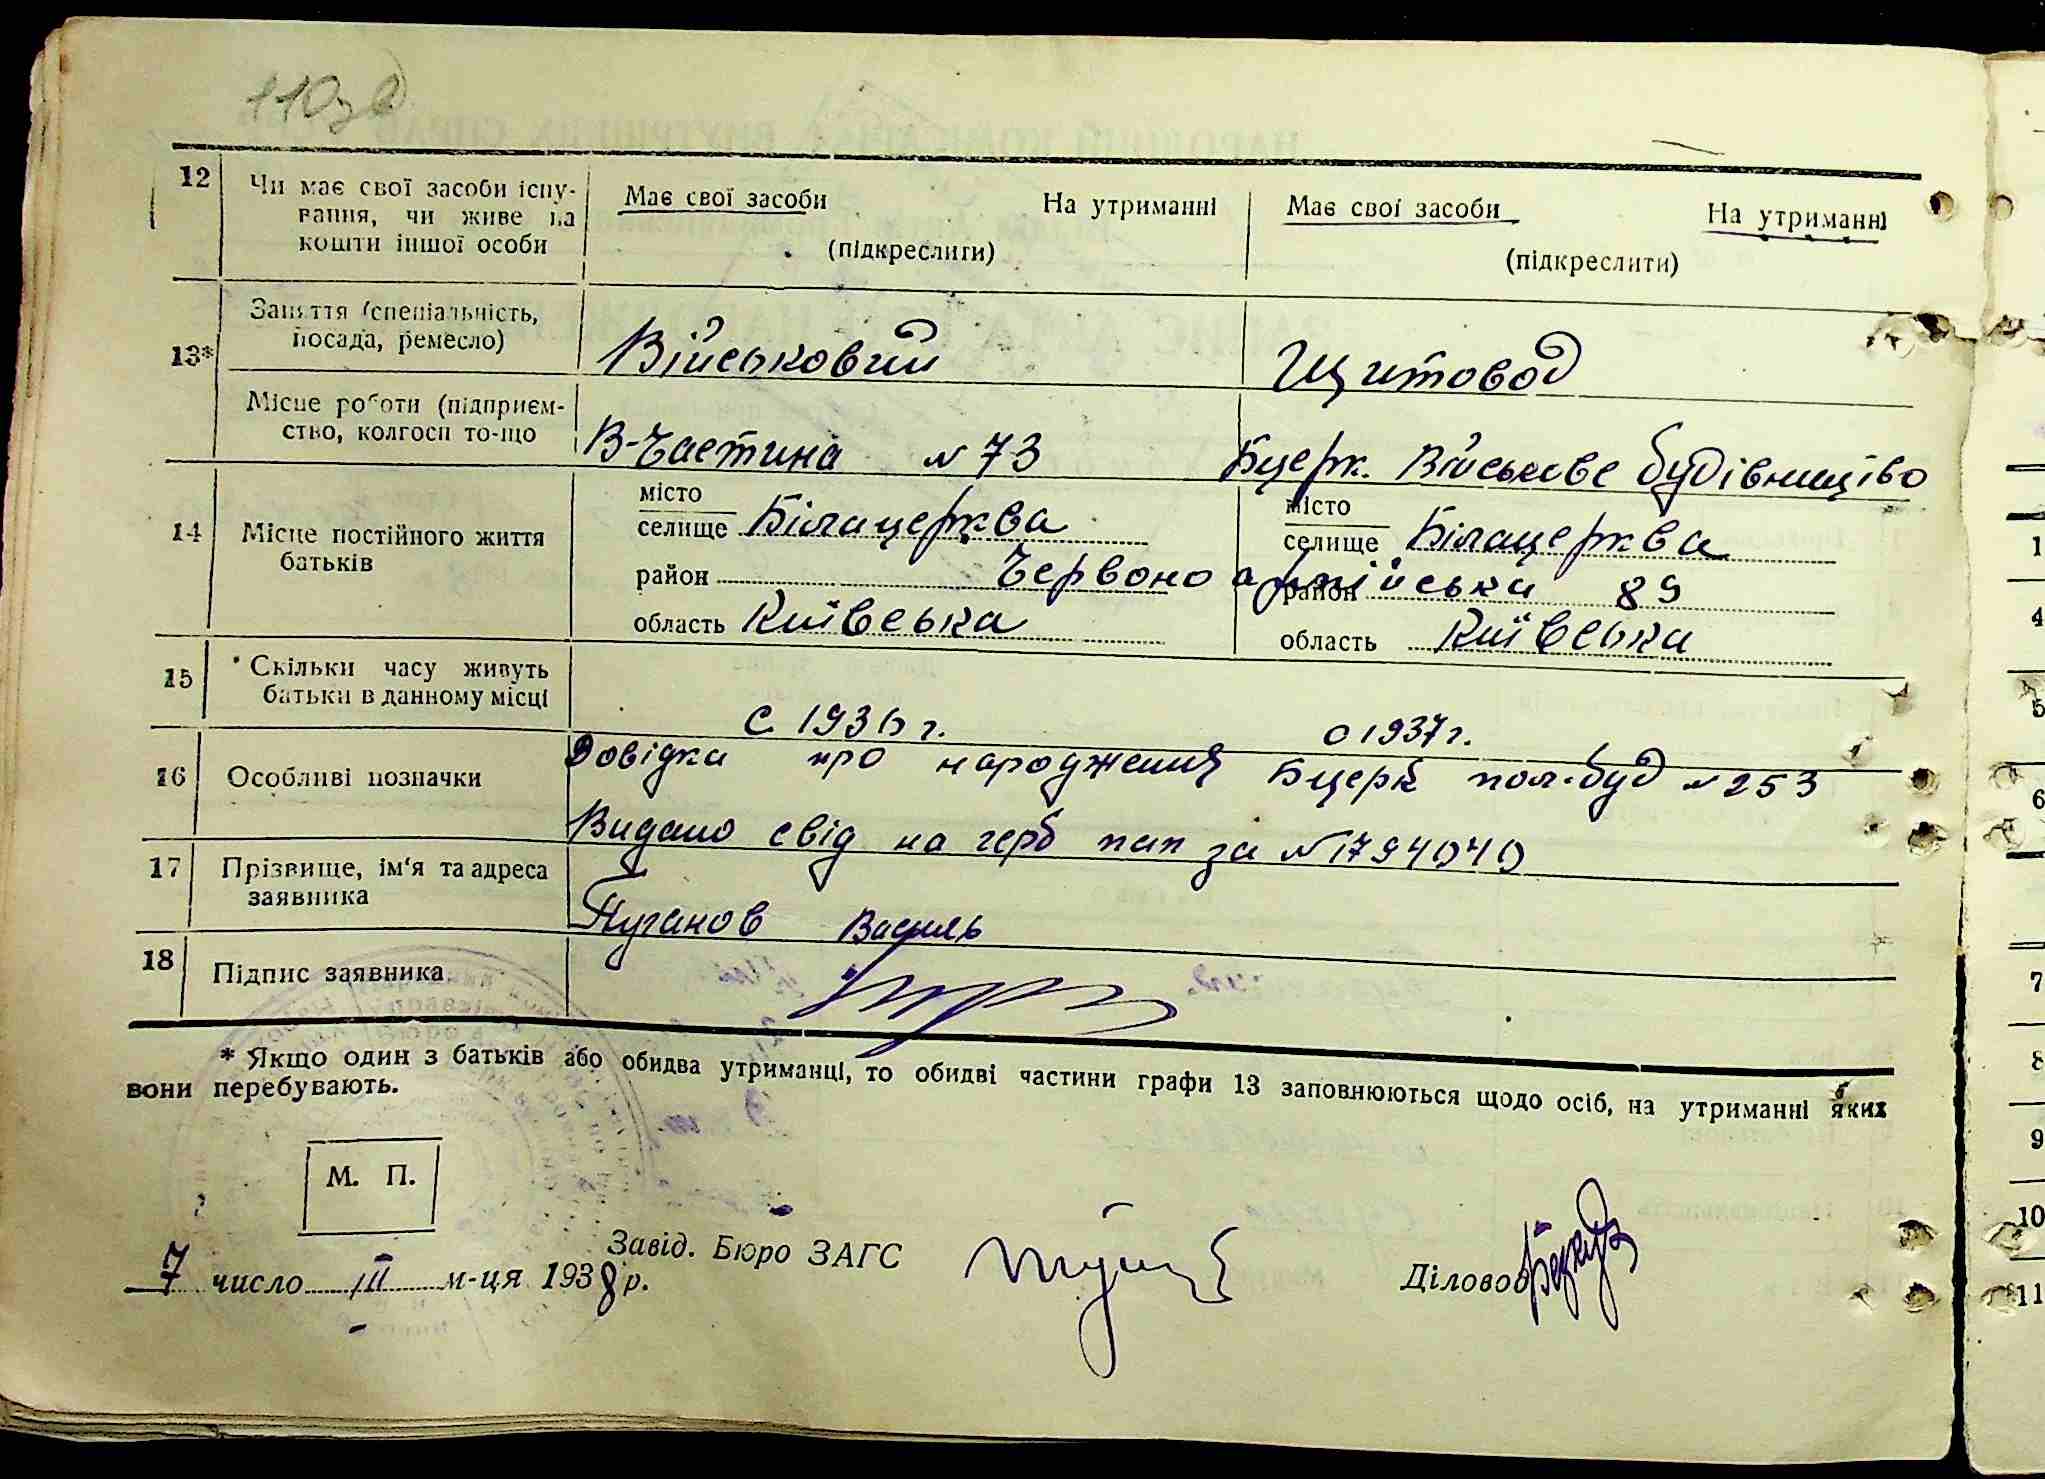 110 зв
12 Чи має свої засоби існування, чи живе на кошти іншої особи
Має свої засоби На утриманні
(підкреслити)
Має свої засоби На утриманні
(підкреслити)
13*
Заняття (спеціальність, посада, ремесло)
Військовий
Щитовод
Місце роботи (підприємство, колгосп то-що
В-Частина №73
Бцерк. Військове будівництво
14 Місце постійного життя батьків
місто
селище Білацерква
район Червоноармійська 89
область Київська
місто
селище Білацерква
район
область Київська
15 Скільки часу живуть батьки в данному місці
с 1936 г.
с 1937 г.
16 Особливі позначки
Довідка про народження Бцерк пол-буд №253
Видано свід на герб пап за №1794040
17 Прізвище, ім'я та адреса заявника
Пуганов Василь
18 Підпис заявника
* Якщо один з батьків або обидва утриманці, то обидві частини графи 13 заповнюються щодо осіб, на утриманні яких
вони перебувають.
М. П.
Завід. Бюро ЗАГС
Діловод
7 число III м-ця 1938 р.
1
4
5
6
7
8
9
10
11